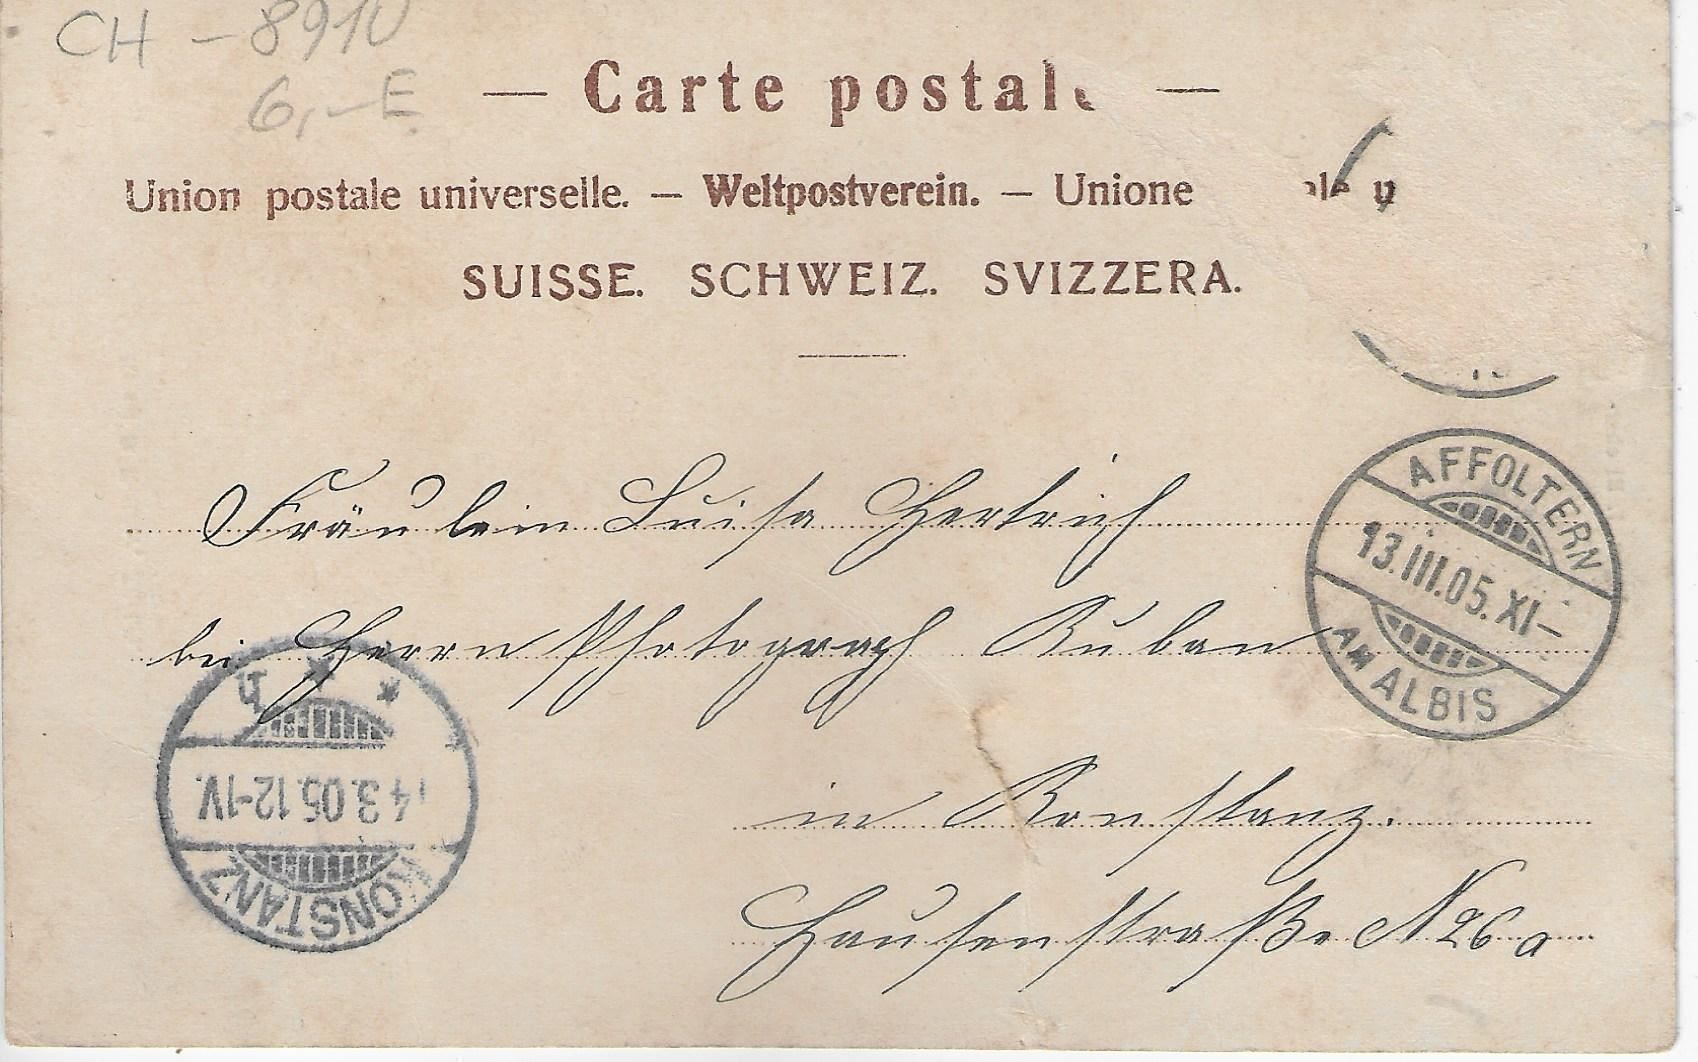 CH – 8910
6,– E
— Carte postale —
Union postale universelle. — Weltpostverein. — Unione ale u
SUISSE. SCHWEIZ. SVIZZERA.
AFFOLTERN
13.III.05. XI–
AM ALBIS
Fräulein Luisa Hertrich
bei Herrn Photograph Ruban
in Konstanz.
Hausenstraße N 26 a
KONSTANZ
14.3.05.12-1V.